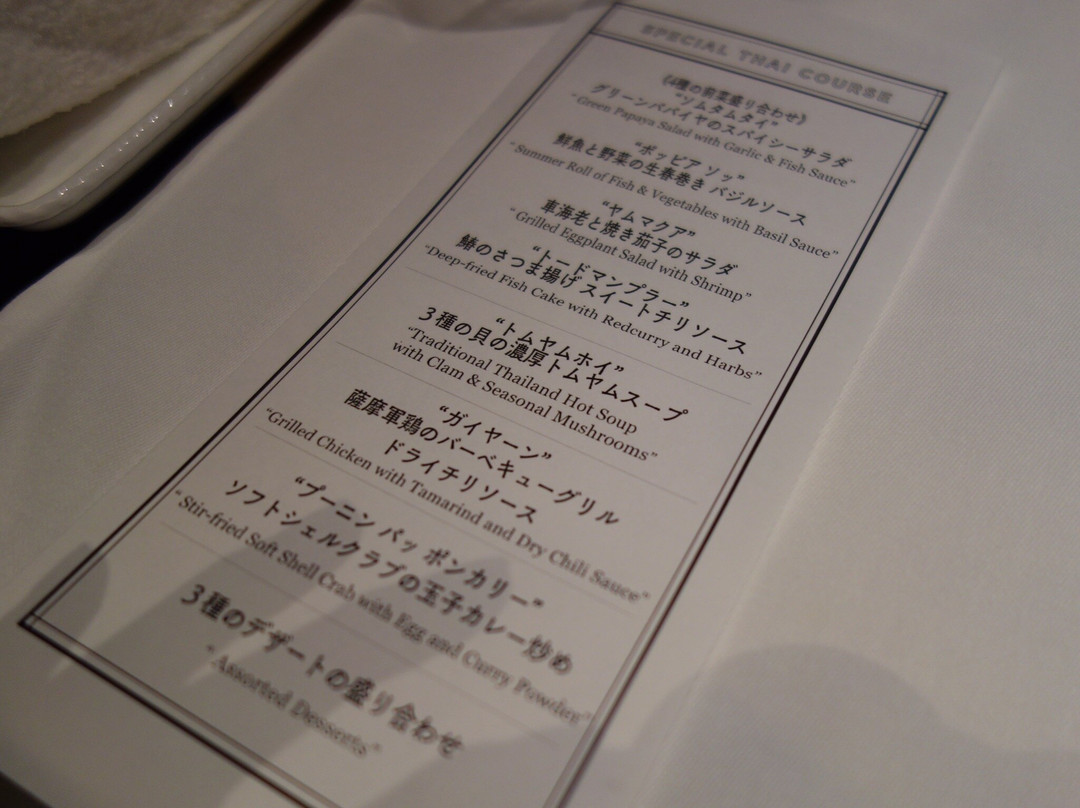 SPECIAL THAI COURSE
《4種の前菜盛り合わせ》
“ソムタムタイ”
グリーンパパイヤのスパイシーサラダ
“Green Papaya Salad with Garlic & Fish Sauce”
“ポッピア ソッ”
鮮魚と野菜の生春巻き バジルソース
“Summer Roll of Fish & Vegetables with Basil Sauce”
“ヤムマクア”
車海老と焼き茄子のサラダ
“Grilled Eggplant Salad with Shrimp”
“トードマンプラー”
鰆のさつま揚げ スイートチリソース
“Deep-fried Fish Cake with Redcurry and Harbs”
“トムヤムホイ”
3種の貝の濃厚トムヤムスープ
“Traditional Thailand Hot Soup
with Clam & Seasonal Mushrooms”
“ガイヤーン”
薩摩軍鶏のバーベキューグリル
ドライチリソース
“Grilled Chicken with Tamarind and Dry Chili Sauce”
“プーニン パッ ポンカリー”
ソフトシェルクラブの玉子カレー炒め
“Stir-fried Soft Shell Crab with Egg and Curry Powdre”
3種のデザートの盛り合わせ
“Assorted Desserts”